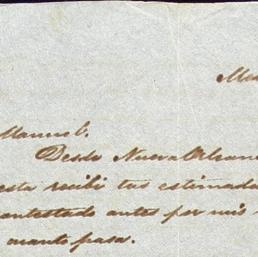 Manuel.
Desde Nueva Orleans
esta recibi tus estimada
contestado antes por mis
cuanto pasa.